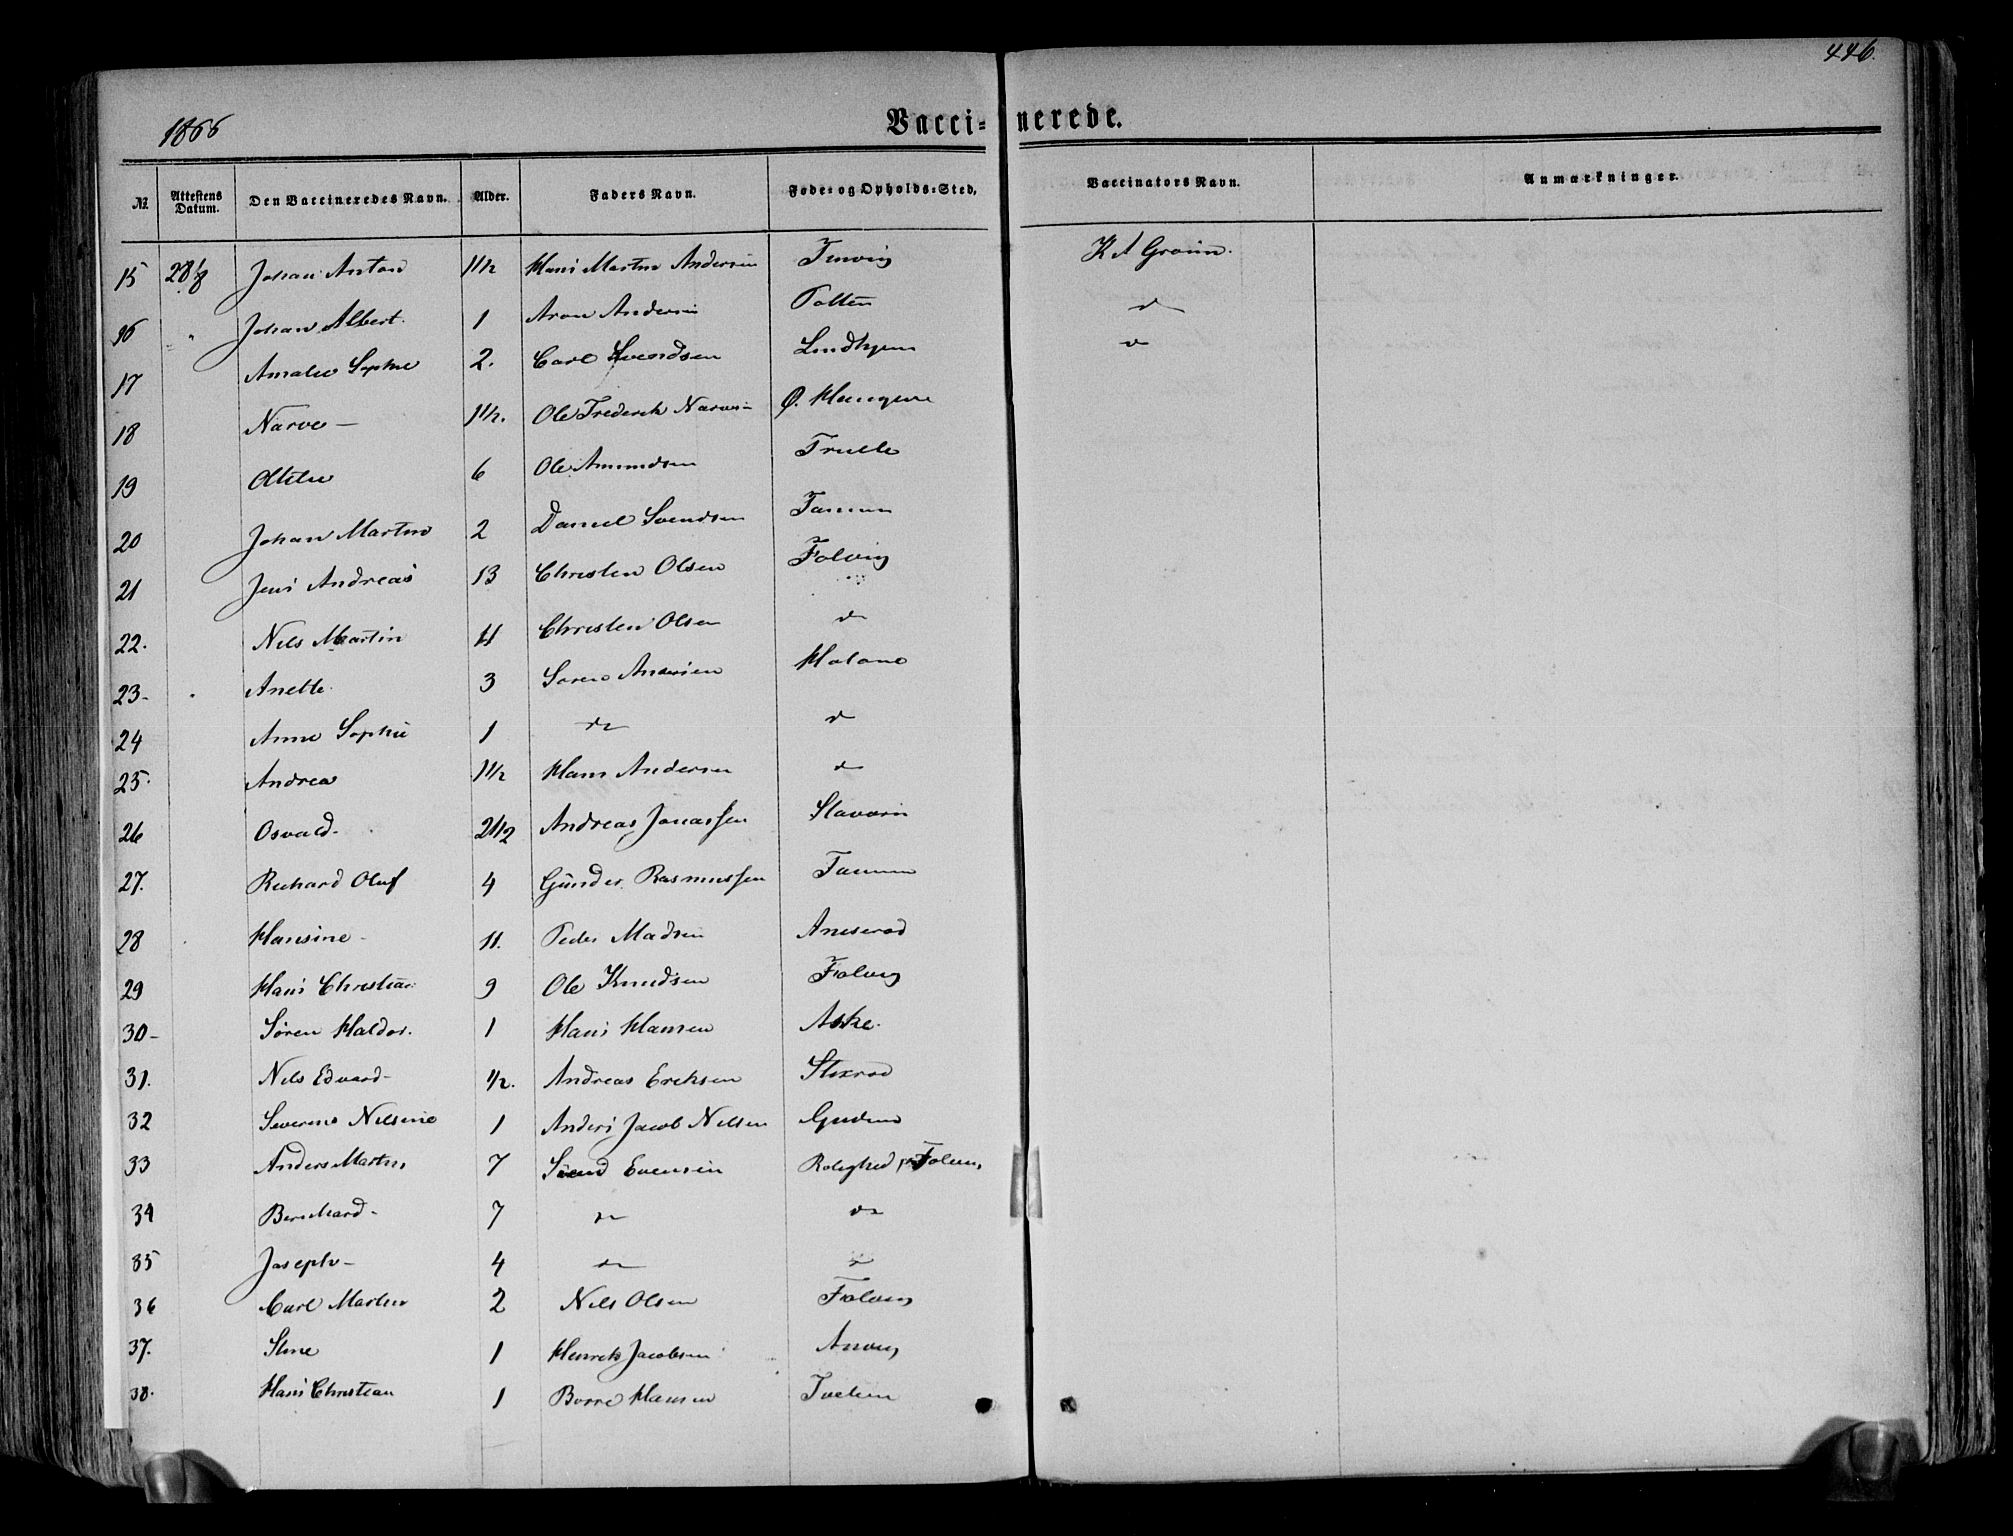 446.
1866
Vacci- nerede.
No. Attestens Datum. Den Vaccineredes Navn. Alder. Faders Navn. Føde- og Opholds-Sted. Vaccinators Navn. Anmærkninger.
15 28/8 Johan Anton 1 1/2 Hans Martin Andersen
16 " Johan Albert. 1 Aron Andersen
17 Amalie Sophie 2. Carl Svendsen Lindhjem
18 Narve – 1 1/2. Ole Frederik Ø.
19 6 Ole Amundsen
20 Johan Martin 2 Daniel Svendsen Tanum
21 Jens Andreas 13 Christen Olsen Falvig
22. Nils Martin 11 Christen Olsen do
23- Anette. 3 Søren Andersen
24 Anne Sophie 1 do do
25. Andrea 1 1/2 Hans Andersen do
26 Osvald- 2 1/2 Andreas Jonassen
27. Richard Oluf 4 Gunder Rasmussen Tanum
28 Hansine - 11. Peder Madsen
29 Hans Christian 9 Ole Knudsen Falvig
30- Søren Haldor. 1 Hans Hansen Aske.
31. Nils Edvard- 1/2. Andreas Eriksen
32 Severine Nilsine 1 Anders Jacob Nilsen
33 Anders Martin 7 Svend Evensen Rolighed Falvig
34 Bernhard- 7 do do
35 Joseph- 4 do do
36 Carl Martin 2 Nils Olsen Falvig
37. Stine 1 Henrik Jacobsen Anvig
38. Hans Christian 1 Borre Hansen